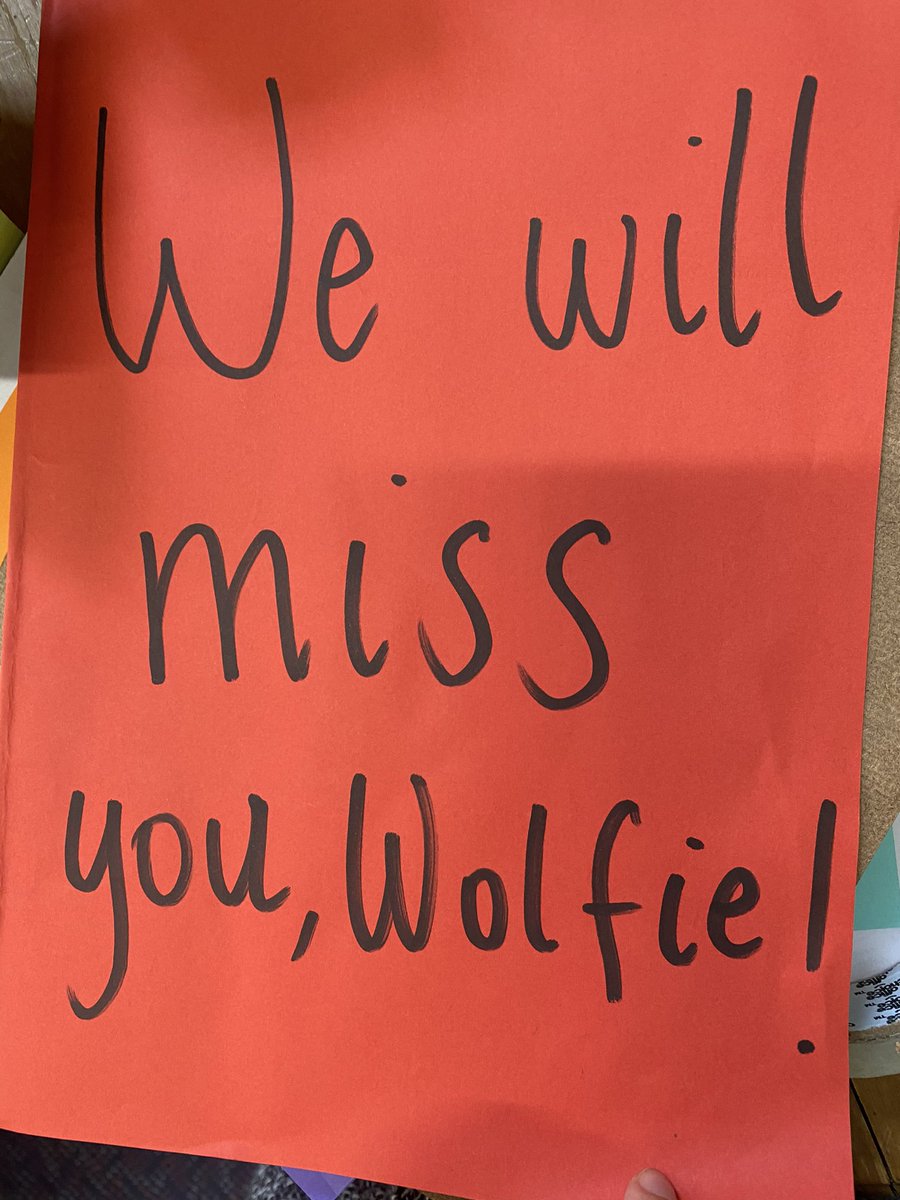 We will
miss
you, Wolfie!